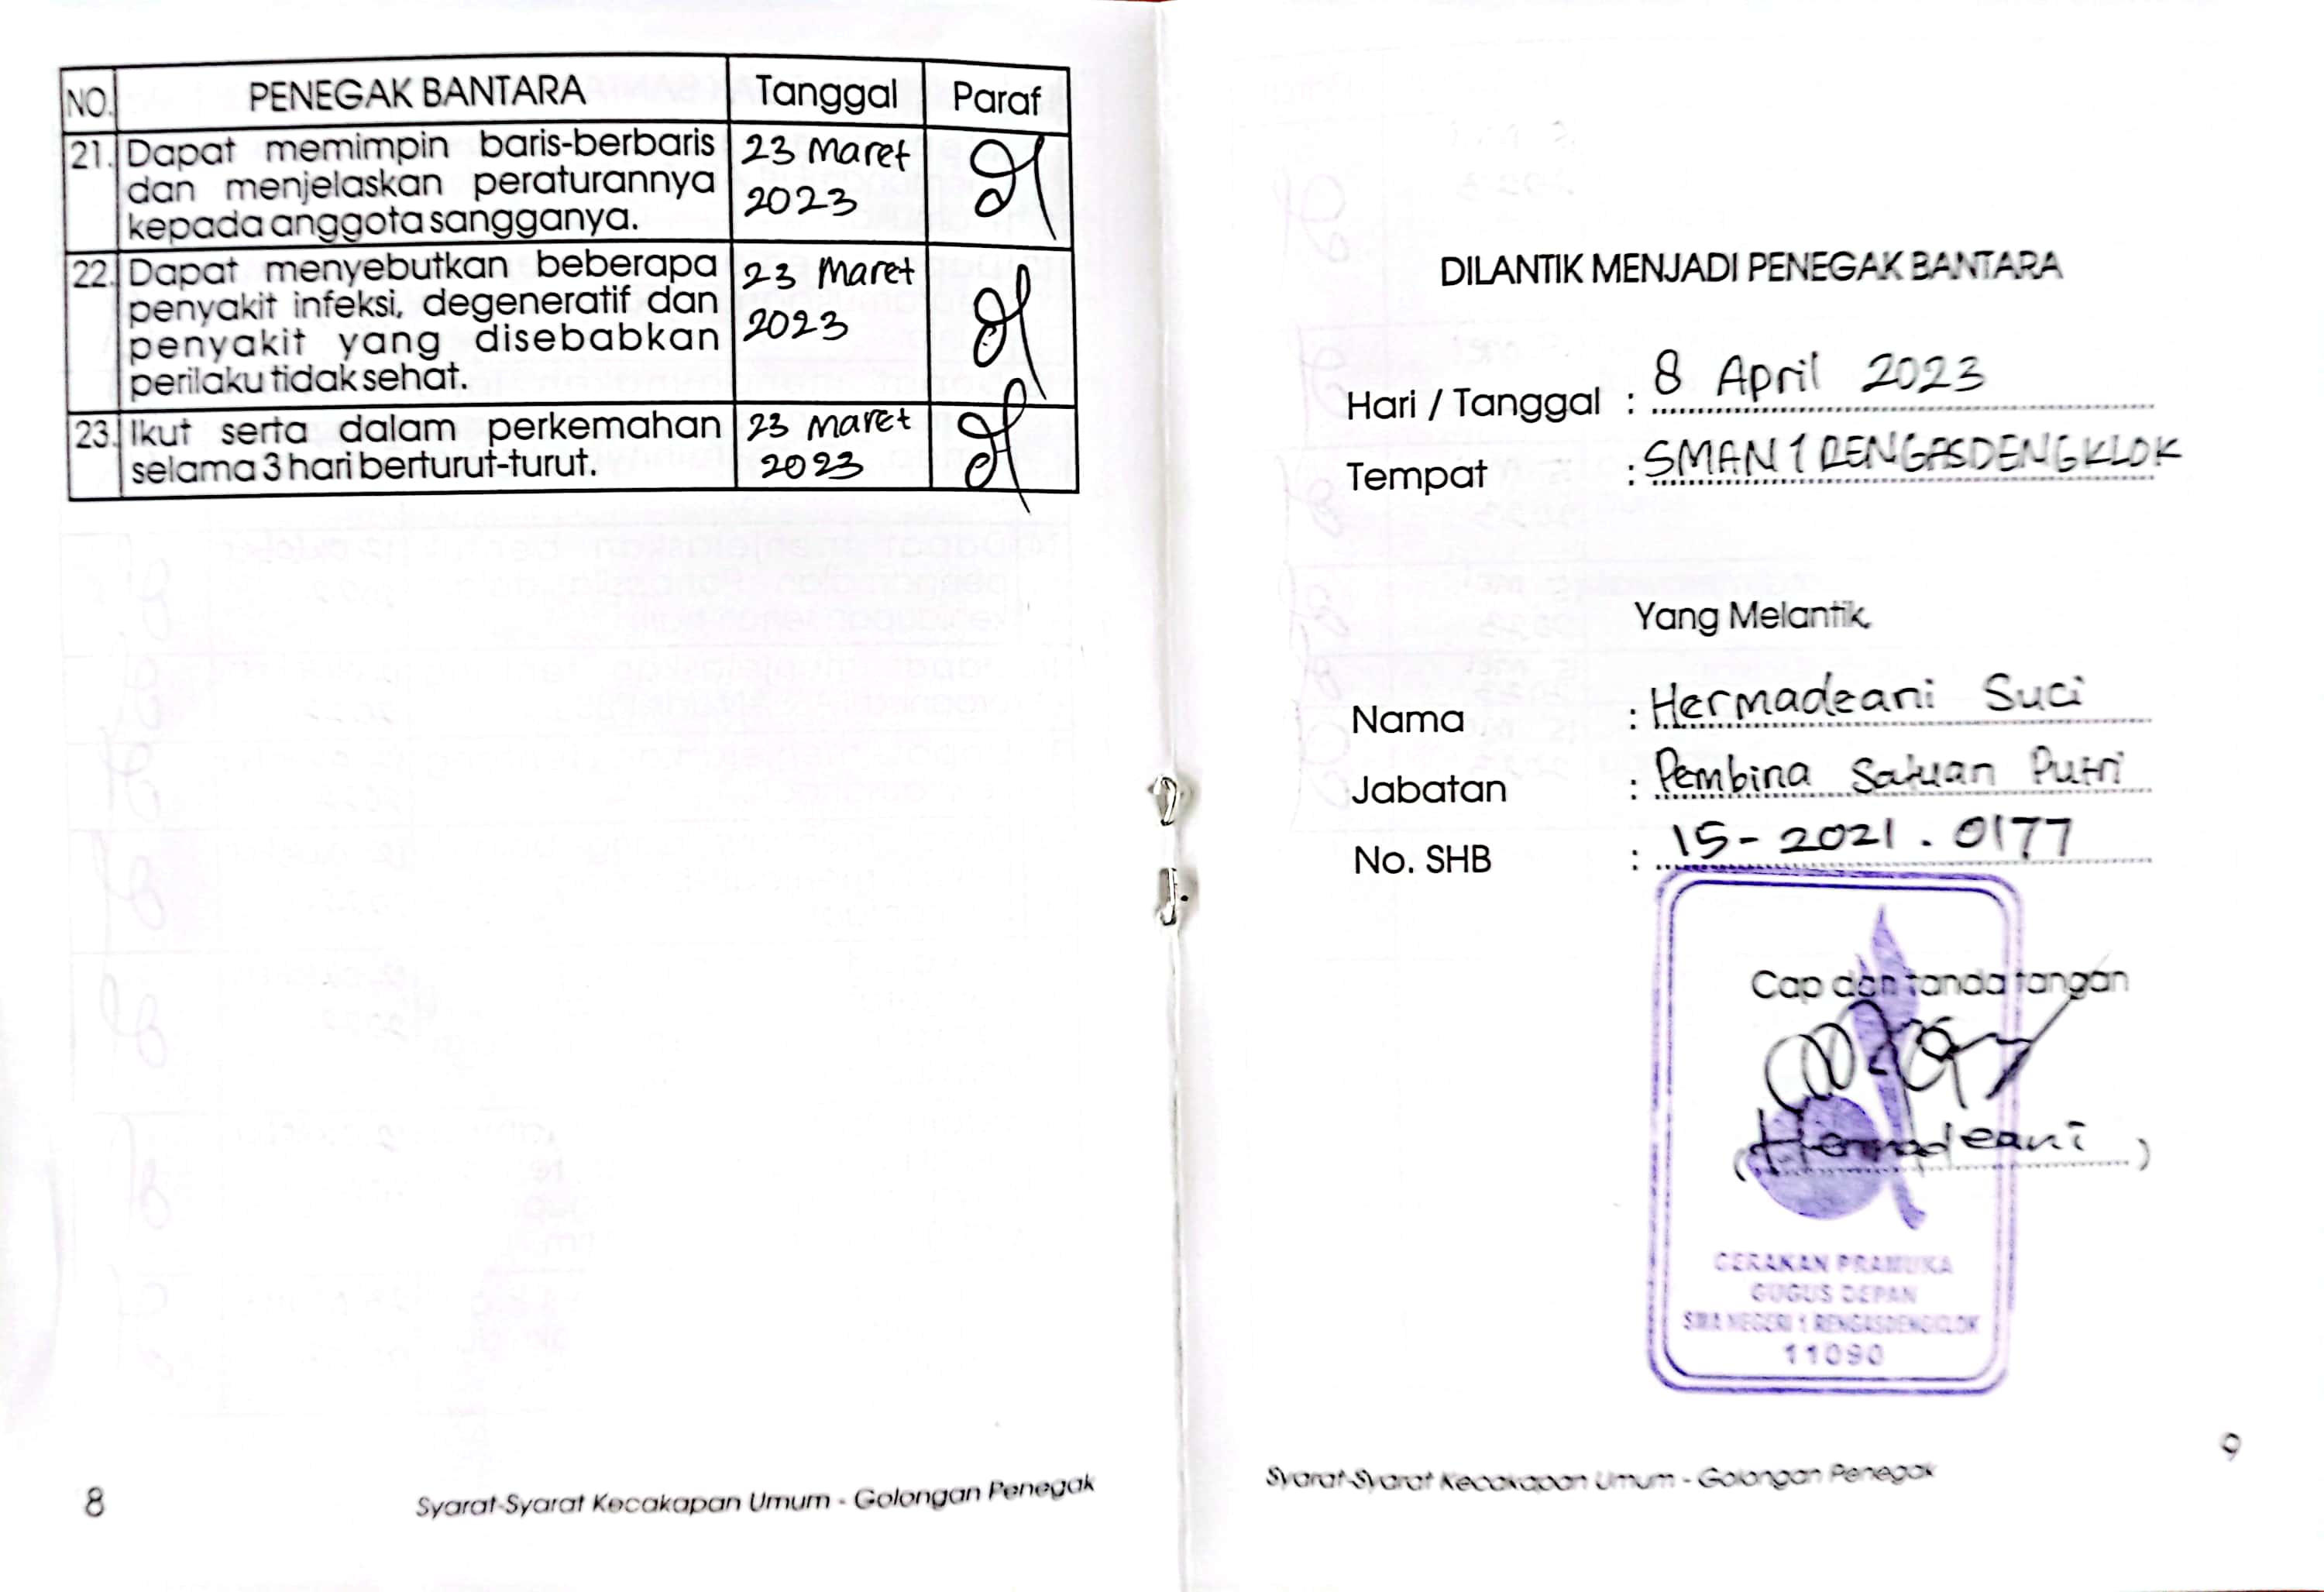 NO. PENEGAK BANTARA Tanggal Paraf
21. Dapat memimpin baris-berbaris 23 Maret
dan menjelaskan peraturannya 2023
kepada anggota sangganya.
22. Dapat menyebutkan beberapa 23 Maret
penyakit infeksi, degeneratif dan 2023
penyakit yang disebabkan
perilaku tidak sehat.
23. Ikut serta dalam perkemahan 23 Maret
selama 3 hari berturut-turut. 2023
8
Syarat-Syarat Kecakapan Umum - Golongan Penegak
DILANTIK MENJADI PENEGAK BANTARA
Hari / Tanggal : 8 April 2023
Tempat : SMAN 1 RENGASDENGKLOK
Yang Melantik,
Nama : Hermadeani Suci
Jabatan : Pembina Satuan Putri
No. SHB : 15-2021.0177
Cap dan tanda tangan
(Hermadeani)
GERAKAN PRAMUKA
GUGUS DEPAN
SMA NEGERI 1 RENGASDENGKLOK
11090
Syarat-Syarat Kecakapan Umum - Golongan Penegak
9